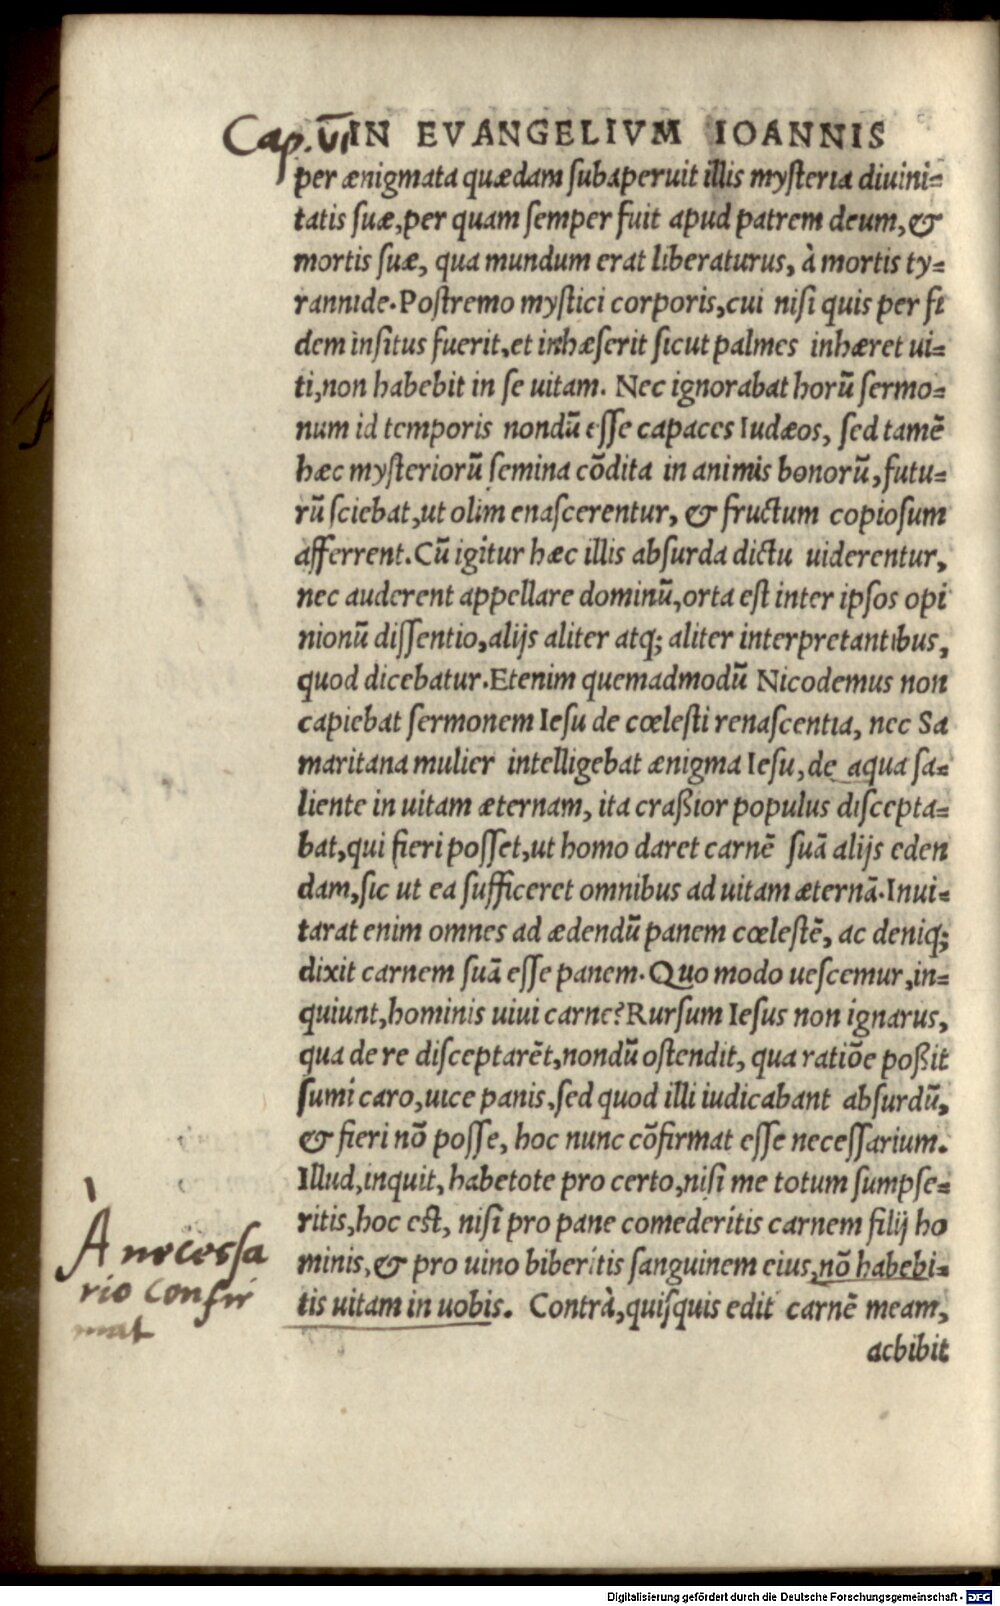 Cap. VI IN EVANGELIVM IOANNIS
per ænigmata quædam ſubaperuit illis myſteria diuini=
tatis ſuæ,per quam ſemper fuit apud patrem deum,&
mortis ſuæ, qua mundum erat liberaturus, à mortis ty=
rannide.Poſtremo myſtici corporis,cui niſi quis per fi
dem inſitus fuerit,et inhæſerit ſicut palmes inhæret ui=
ti,non habebit in ſe uitam. Nec ignorabat horũ ſermo=
num id temporis nondũ eſſe capaces Iudæos, ſed tamẽ
hæc myſteriorũ ſemina cõdita in animis bonorũ,futu=
rũ ſciebat,ut olim enaſcerentur, & fructum copioſum
afferrent.Cũ igitur hæc illis abſurda dictu uiderentur,
nec auderent appellare dominũ,orta eſt inter ipſos opi
nionũ diſſentio,alijs aliter atq; aliter interpretantibus,
quod dicebatur.Etenim quemadmodũ Nicodemus non
capiebat ſermonem Ieſu de cœleſti renaſcentia, nec Sa
maritana mulier intelligebat ænigma Ieſu,de aqua ſa=
liente in uitam æternam, ita craßior populus diſcepta=
bat,qui fieri poſſet,ut homo daret carnẽ ſuã alijs eden
dam,ſic ut ea ſufficeret omnibus ad uitam æternã.Inui=
tarat enim omnes ad ædendũ panem cœleſtẽ, ac deniq;
dixit carnem ſuã eſſe panem.Quo modo ueſcemur,in=
quiunt,hominis uiui carne?Rurſum Ieſus non ignarus,
qua de re diſceptarẽt,nondũ oſtendit, qua ratiõe poßit
ſumi caro,uice panis,ſed quod illi iudicabant abſurdũ,
& fieri nõ poſſe, hoc nunc cõfirmat eſſe neceſſarium.
Illud,inquit,habetote pro certo,niſi me totum ſumpſe=
ritis,hoc eſt, niſi pro pane comederitis carnem filij ho
minis,& pro uino biberitis ſanguinem eius,nõ habebi=
tis uitam in uobis. Contrà,quiſquis edit carnẽ meam,
acbibit
À neceſſa
rio confir
mat
Digitalisierung gefördert durch die Deutsche Forschungsgemeinschaft - DFG